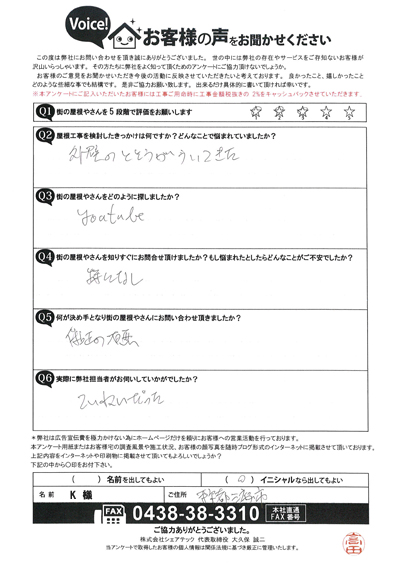 Voice!
お客様の声をお聞かせください
この度は弊社にお問い合わせを頂き誠にありがとうございました。 世の中には弊社の存在やサービスをご存知ないお客様が
沢山いらっしゃいます。 その方たちに弊社をよく知って頂くためのアンケートにご協力頂けないでしょうか。
お客様のご意見をお聞かせいただき今後の活動に反映させていただきたいと考えております。 良かったこと、嬉しかったこと
どのような些細な事でも結構です。 是非ご協力お願い致します。 出来るだけ具体的に書いて頂ければ幸いです。
※本アンケートにご記入いただいたお客様には工事ご用命時に工事金額税抜きの 2%をキャッシュバックさせていただきます。
Q1 街の屋根やさんを5段階で評価をお願いします
Q2 屋根工事を検討したきっかけは何ですか?どんなことで悩まれていましたか?
外壁のとそうがういてきた
Q3 街の屋根やさんをどのように探しましたか?
youtube
Q4 街の屋根やさんを知りすぐにお問合せ頂けましたか?もし悩まれたとしたらどんなことがご不安でしたか?
特になし
Q5 何が決め手となり街の屋根やさんにお問い合わせ頂きましたか?
Q6 実際に弊社担当者がお伺いしていかがでしたか?
ていねいだった
*弊社は広告宣伝費を極力かけない為にホームページだけを頼りにお客様への営業活動を行っております。
本アンケート用紙またはお客様宅の調査風景や施工状況、お客様の顔写真を随時ブログ形式でのインターネットに掲載させて頂いております。
上記内容をインターネットや印刷物に掲載させて頂いてもよろしいでしょうか?
下記の中から〇印をお付下さい。
( ) 名前を出してもよい ( 〇 ) イニシャルなら出してもよい
名前 K 様 ご住所
FAX 0438-38-3310 本社直通 FAX番号
ご協力ありがとうございました。
株式会社シェアテック 代表取締役 大久保 誠二
当アンケートで取得したお客様の個人情報は関係法規に基づき厳正に管理いたします。